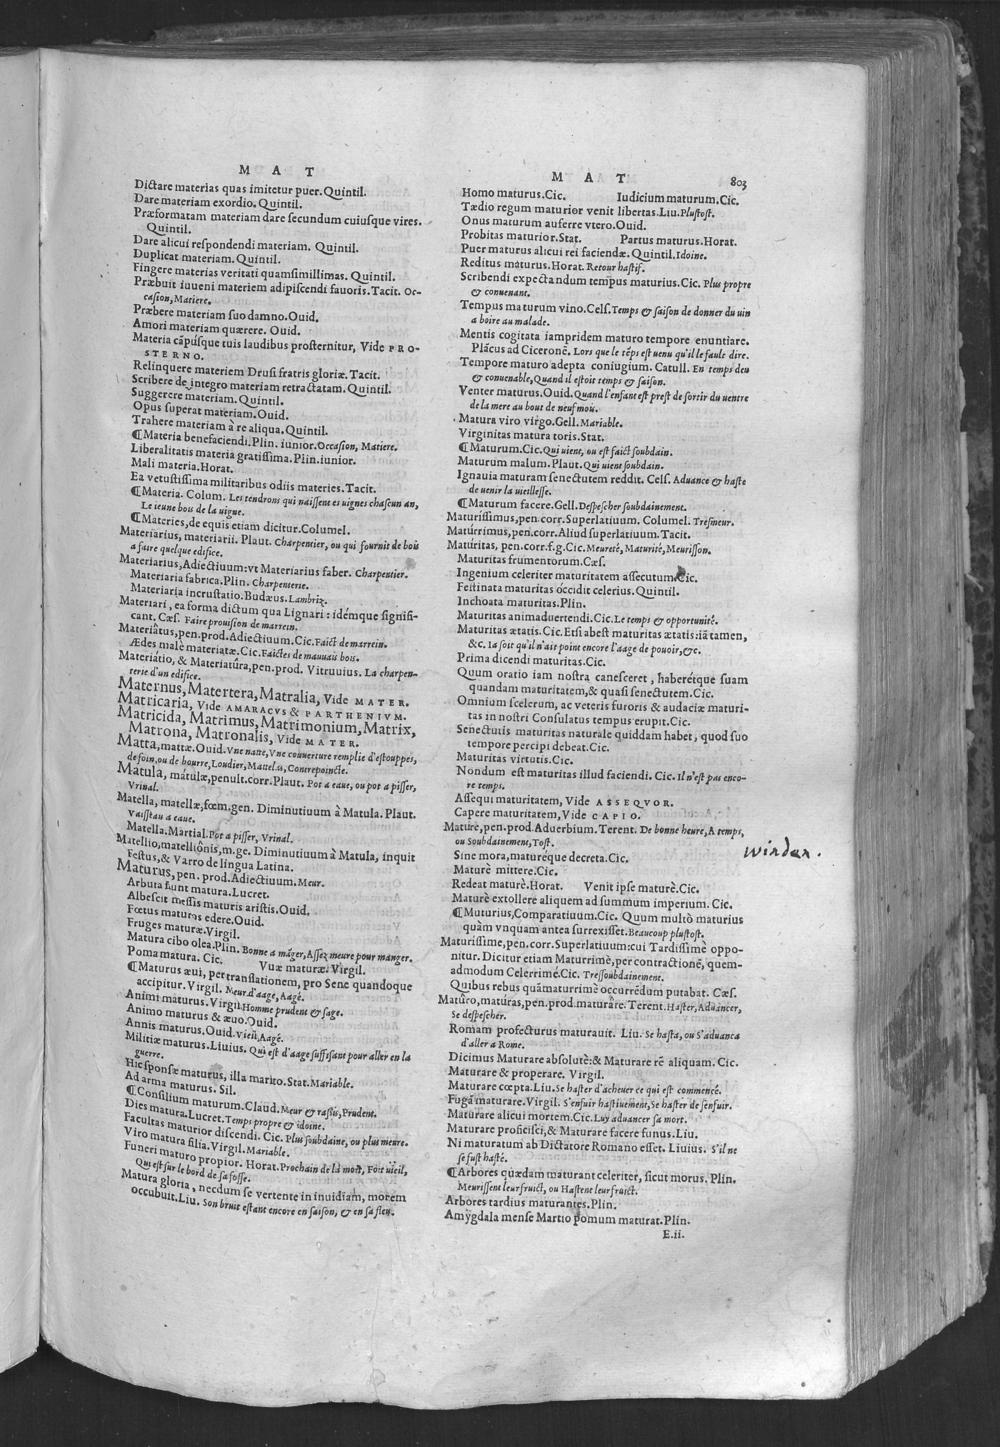 M A T
Dictare materias quas imitetur puer. Quintil.
Dare materiam exordio. Quintil.
Præformatam materiam dare secundum cuiusque vires.
Quintil.
Dare alicui respondendi materiam. Quintil.
Duplicat materiam. Quintil.
Fingere materias veritati quamsimillimas. Quintil.
Præbuit iuueni materiem adipiscendi fauoris. Tacit. Oc-
casion, Matiere.
Præbere materiam suo damno. Ouid.
Amori materiam quærere. Ouid.
Materia cāpúsque tuis laudibus prosternitur, Vide PRO-
STERNO.
Relinquere materiem Drusi fratris gloriæ. Tacit.
Scribere de integro materiam retractatam. Quintil.
Suggerere materiam. Quintil.
Opus superat materiam. Ouid.
Trahere materiam à re aliqua. Quintil.
¶Materia benefaciendi. Plin. iunior. Occasion, Matiere.
Liberalitatis materia gratissima. Plin. iunior.
Mali materia. Horat.
Ea vetustissima militaribus odiis materies. Tacit.
¶Materia. Colum. Les tendrons qui naissent es uignes chascun an,
Le ieune bois de la uigne.
¶Materies, de equis etiam dicitur. Columel.
Materiarius, materiarii. Plaut. Charpentier, ou qui fournit de bois
a faire quelque edifice.
Materiarius, Adiectiuum: vt Materiarius faber. Charpentier.
Materiaria fabrica. Plin. Charpenterie.
Materiaria incrustatio. Budæus. Lambriz.
Materiari, ea forma dictum qua Lignari: idémque signifi-
cant. Cæs. Faire prouision de marrein.
Materiâtus, pen. prod. Adiectiuum. Cic. Faict de marrein.
Ædes malè materiatæ. Cic. Faictes de mauuais bois.
Materiátio, & Materiatûra, pen. prod. Vitruuius. La charpen-
terie d'un edifice.
Maternus, Matertera, Matralia, Vide MATER.
Matricaria, Vide AMARACVS & PARTHENIVM.
Matricida, Matrimus, Matrimonium, Matrix,
Matrona, Matronalis, Vide MATER.
Matta, mattæ. Ouid. Vne natte, Vne couuerture remplie d'estouppes,
de foin, ou de bourre, Loudier, Mattelas, Contrepoincte.
Matula, mátulæ, penult. corr. Plaut. Pot a eaue, ou pot a pisser,
Vrinal.
Matella, matellæ, fœm. gen. Diminutiuum à Matula. Plaut.
Vaisseau a eaue.
Matella. Martial. Pot a pisser, Vrinal.
Matellio, matelliônis, m. ge. Diminutiuum à Matula, inquit
Festus, & Varro de lingua Latina.
Maturus, pen. prod. Adiectiuum. Meur.
Arbuta sunt matura. Lucret.
Albescit messis maturis aristis. Ouid.
Fœtus maturos edere. Ouid.
Fruges maturæ. Virgil.
Matura cibo olea. Plin. Bonne a māger, Assez meure pour manger.
Poma matura. Cic. Vuæ maturæ. Virgil.
¶Maturus æui, per translationem, pro Sene quandoque
accipitur. Virgil. Meur d'aage, Aagé.
Animi maturus. Virgil. Homme prudent & sage.
Animo maturus & æuo. Ouid.
Annis maturus. Ouid. vieil, Aagé.
Militiæ maturus. Liuius. Qui est d'aage suffisant pour aller en la
guerre.
Hic sponsæ maturus, illa marito. Stat. Mariable.
Ad arma maturus. Sil.
¶Consilium maturum. Claud. Meur & rassis, Prudent.
Dies matura. Lucret. Temps propre & idoine.
Facultas maturior discendi. Cic. Plus soubdaine, ou plus meure.
Viro matura filia. Virgil. Mariable.
Funeri maturo propior. Horat. Prochain de la mort, Fort uieil,
Qui est sur le bord de sa fosse.
Matura gloria, necdum se vertente in inuidiam, morem
occubuit. Liu. Son bruit estant encore en saison, & en sa fleur.
M A T
803
Homo maturus. Cic. Iudicium maturum. Cic.
Tædio regum maturior venit libertas. Liu. Plustost.
Onus maturum auferre vtero. Ouid.
Probitas maturior. Stat. Partus maturus. Horat.
Puer maturus alicui rei faciendæ. Quintil. Idoine.
Reditus maturus. Horat. Retour hastif.
Scribendi expectandum tempus maturius. Cic. Plus propre
& conuenant.
Tempus maturum vino. Cels. Temps & saison de donner du uin
a boire au malade.
Mentis cogitata iampridem maturo tempore enuntiare.
Plācus ad Ciceronē. Lors que le tēps est uenu qu'il le faule dire.
Tempore maturo adepta coniugium. Catull. En temps deu
& conuenable, Quand il estoit temps & saison.
Venter maturus. Ouid. Quand l'enfant est prest de sortir du uentre
de la mere au bout de neuf mou.
Matura viro virgo. Gell. Mariable.
Virginitas matura toris. Stat.
¶Maturum. Cic. Qui uient, ou est faict soubdain.
Maturum malum. Plaut. Qui uient soubdain.
Ignauia maturam senectutem reddit. Cels. Aduance & haste
de uenir la uieillesse.
¶Maturum facere. Gell. Despescher soubdainement.
Maturissimus, pen. corr. Superlatiuum. Columel. Tresmeur.
Maturrimus, pen. corr. Aliud superlatiuum. Tacit.
Matúritas, pen. corr. f. g. Cic. Meureté, Maturité, Meurisson.
Maturitas frumentorum. Cæs.
Ingenium celeriter maturitatem assecutum. Cic.
Festinata maturitas óccidit celerius. Quintil.
Inchoata maturitas. Plin.
Maturitas animaduertendi. Cic. Le temps & opportunité.
Maturitas ætatis. Cic. Etsi abest maturitas ætatis: iā tamen,
&c. Ia soit qu'il n'ait point encore l'aage de pouoir, &c.
Prima dicendi maturitas. Cic.
Quum oratio iam nostra canesceret, haberétque suam
quandam maturitatem, & quasi senectutem. Cic.
Omnium scelerum, ac veteris furoris & audaciæ maturi-
tas in nostri Consulatus tempus erupit. Cic.
Senectutis maturitas naturale quiddam habet, quod suo
tempore percipi debeat. Cic.
Maturitas virtutis. Cic.
Nondum est maturitas illud faciendi. Cic. Il n'est pas enco-
re temps.
Assequi maturitatem, Vide ASSEQVOR.
Capere maturitatem, Vide CAPIO.
Maturè, pen. prod. Aduerbium. Terent. De bonne heure, A temps,
ou Soubdainement, Tost.
Sine mora, maturéque decreta. Cic.
Maturè mittere. Cic.
Redeat maturè. Horat. Venit ipse maturè. Cic.
Maturè extollere aliquem ad summum imperium. Cic.
¶Muturius, Comparatiuum. Cic. Quum multò maturius
quàm vnquam antea surrexisset. Beaucoup plustost.
Maturissime, pen. corr. Superlatiuum: cui Tardissimè oppo-
nitur. Dicitur etiam Maturrimè, per contractionē, quem-
admodum Celerrimé. Cic. Tressoubdainement.
Quibus rebus quāmaturrimè occurrēdum putabat. Cæs.
Matûro, matûras, pen. prod. maturâre. Terent. Haster, Aduancer,
Se despescher.
Romam profecturus maturauit. Liu. Se hasta, ou S'aduanca
d'aller a Rome.
Dicimus Maturare absolutè: & Maturare rē aliquam. Cic.
Maturare & properare. Virgil.
Maturare cœpta. Liu. Se haster d'acheuer ce qui est commencé.
Fugā maturare. Virgil. S'enfuir hastiuement, Se haster de s'enfuir.
Maturare alicui mortem. Cic. Luy aduancer sa mort.
Maturare proficisci, & Maturare facere funus. Liu.
Ni maturatum ab Dictatore Romano esset. Liuius. S'il ne
se fust hasté.
¶Arbores quædam maturant celeriter, sicut morus. Plin.
Meurissent leur fruict, ou Hastent leur fruict.
Arbores tardius maturantes. Plin.
Amygdala mense Martio pomum maturat. Plin.
E.ii.
winden.